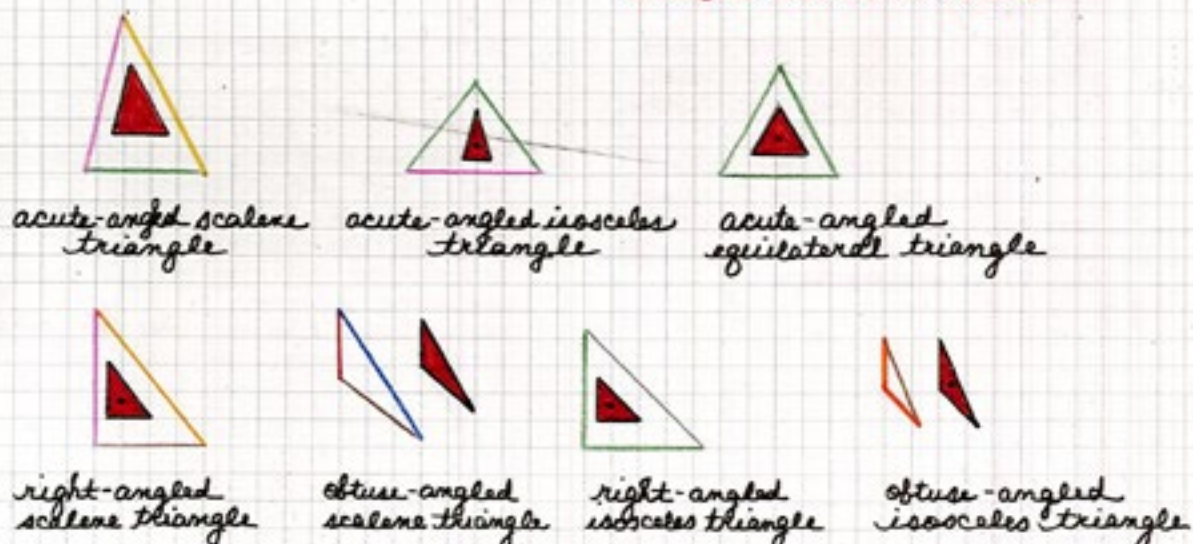 acute-angled scalene
triangle
acute-angled isosceles
triangle
acute-angled
equilateral triangle
right-angled
scalene triangle
obtuse-angled
scalene triangle
right-angled
isosceles triangle
obtuse-angled
isosceles triangle